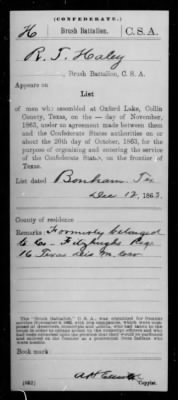 (CONFEDERATE.)
H Brush Battalion. C. S. A.
R. T. Haley
, Brush Battalion, C. S. A.
Appears on
List
of men who assembled at Oxford Lake, Collin
County, Texas, on the — day of November,
1863, under an agreement made between them
and the Confederate States authorities on or
about the 20th day of October, 1863, for the
purpose of organizing and entering the service
of the Confederate States, on the frontier of
Texas.
List dated Bonham Tex
Dec 12, 1863.
County of residence
Remarks Formerly belonged
to Co— Fitzhughs Reg
16 Texas Dis m. Cav
The "Brush Battalion," C. S. A., was organized for frontier
Book mark:
(662) Copyist.